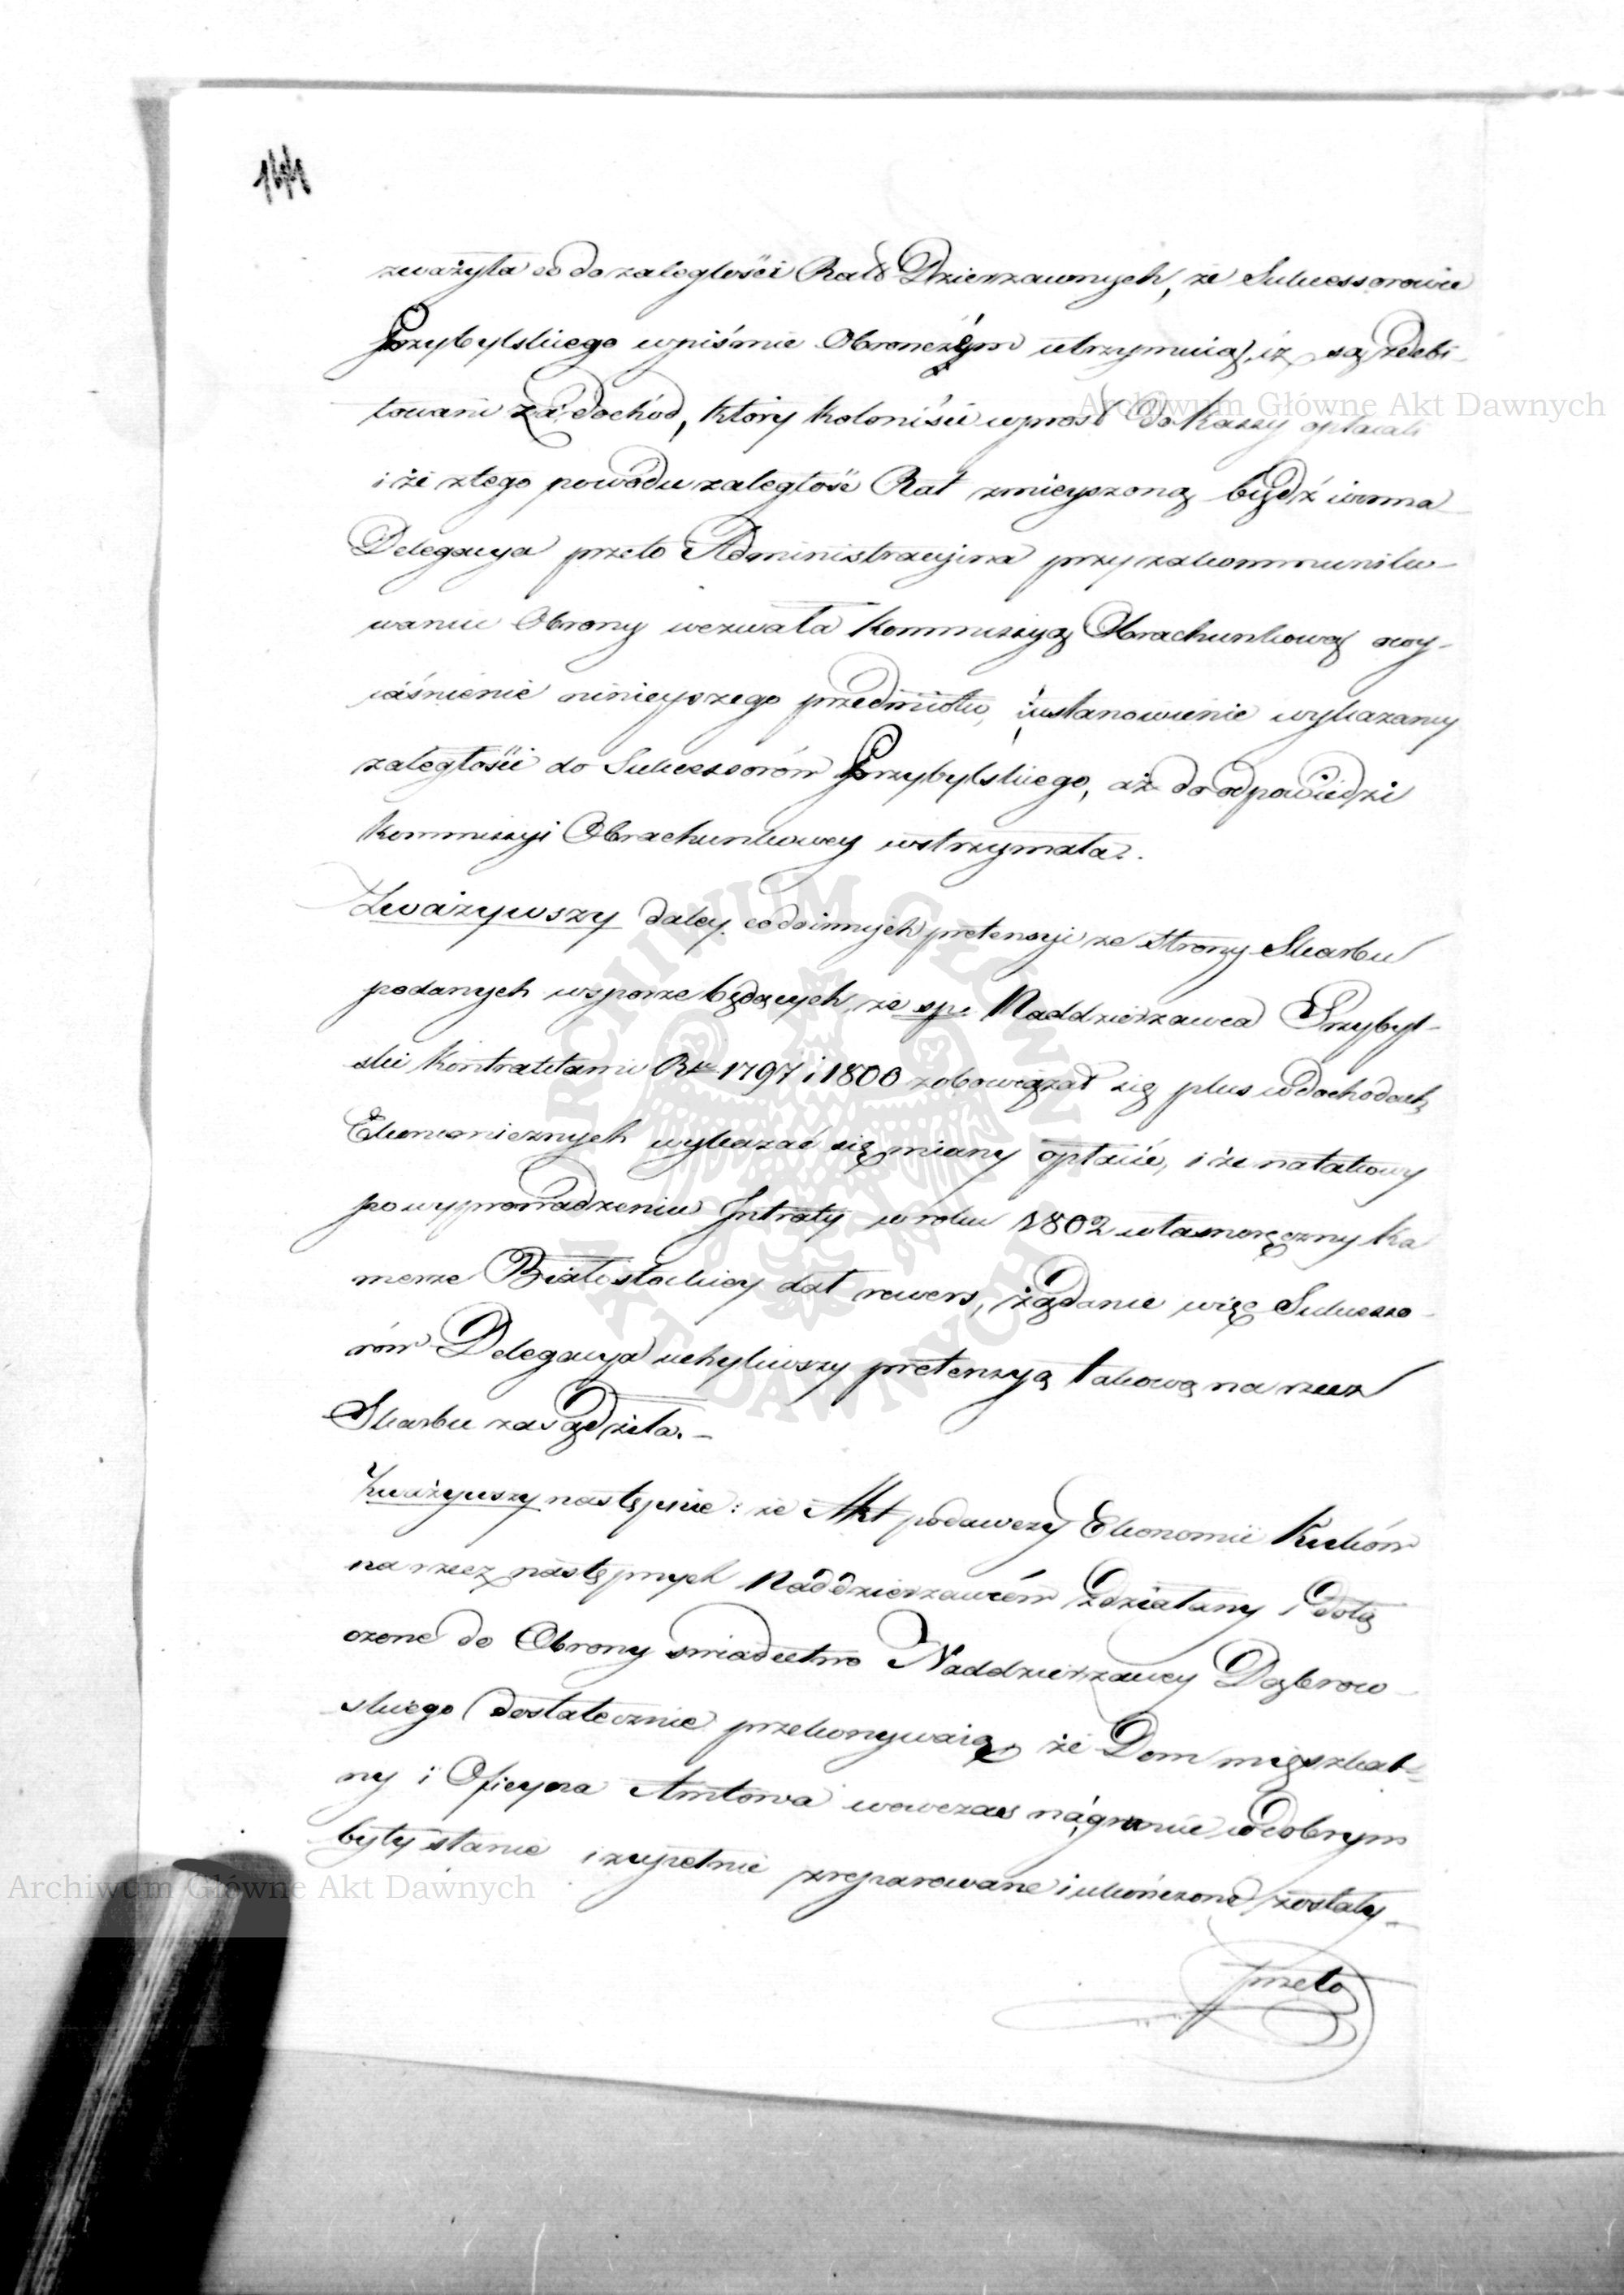 144
zważyła co do zaległości Rat Dzierzawnych, że Sukcessorowie
Przybylskiego w piśmie Obronczym utrzymuią, iż są zdebi-
towani za dochód, który koloniści wprost do Kassy opłacali
i że z tego powodu zaległość Rat zmieyszoną bydź winna
Delegacya przeto Administracyina przy zakommuniko-
waniu Obrony wezwała Kommissyą Obrachunkową o wy-
iaśnienie ninieyszego przedmiotu, i ustanowienie wykazaney
zaległości do Sukcessorów Przybylskiego, aż do odpowiedzi
Kommissyi Obrachunkowey wstrzymała.
Zważywszy daley co do innych pretensyi ze strony Skarbu
podanych w sporze będących, że sp. Naddzierzawca Przybyl-
ski kontraktami Rku 1797 i 1800 zobowiązał się plus w dochodach
Ekonomicznych wykazać się miany opłacić, i że na takowy
po wyprowadzeniu Intraty w roku 1802 własnoręczny Ka
merze Białostockiey dał rewers, żądanie więc Sukcesso-
rów Delegacya uchyliwszy pretensyą takową na rzecz
Skarbu zasądziła.-
Zważywszy następnie: że Akt podawczy Ekonomii Kuków
na rzecz następnych Naddzierzawców zdziałany i dołą
czone do Obrony swiadectwo Naddzierzawcy Dąbrow-
skiego dostatecznie przekonywaią że Dom mięszkal-
ny i Oficyna Amtowa wowczas na gruncie w dobrym
były stanie i zupełnie zreparowane i ukończone zostały-
przeto
Archiwum Główne Akt Dawnych
Archiwum Główne Akt Dawnych
ARCHIWUM GŁÓWNE AKT DAWNYCH